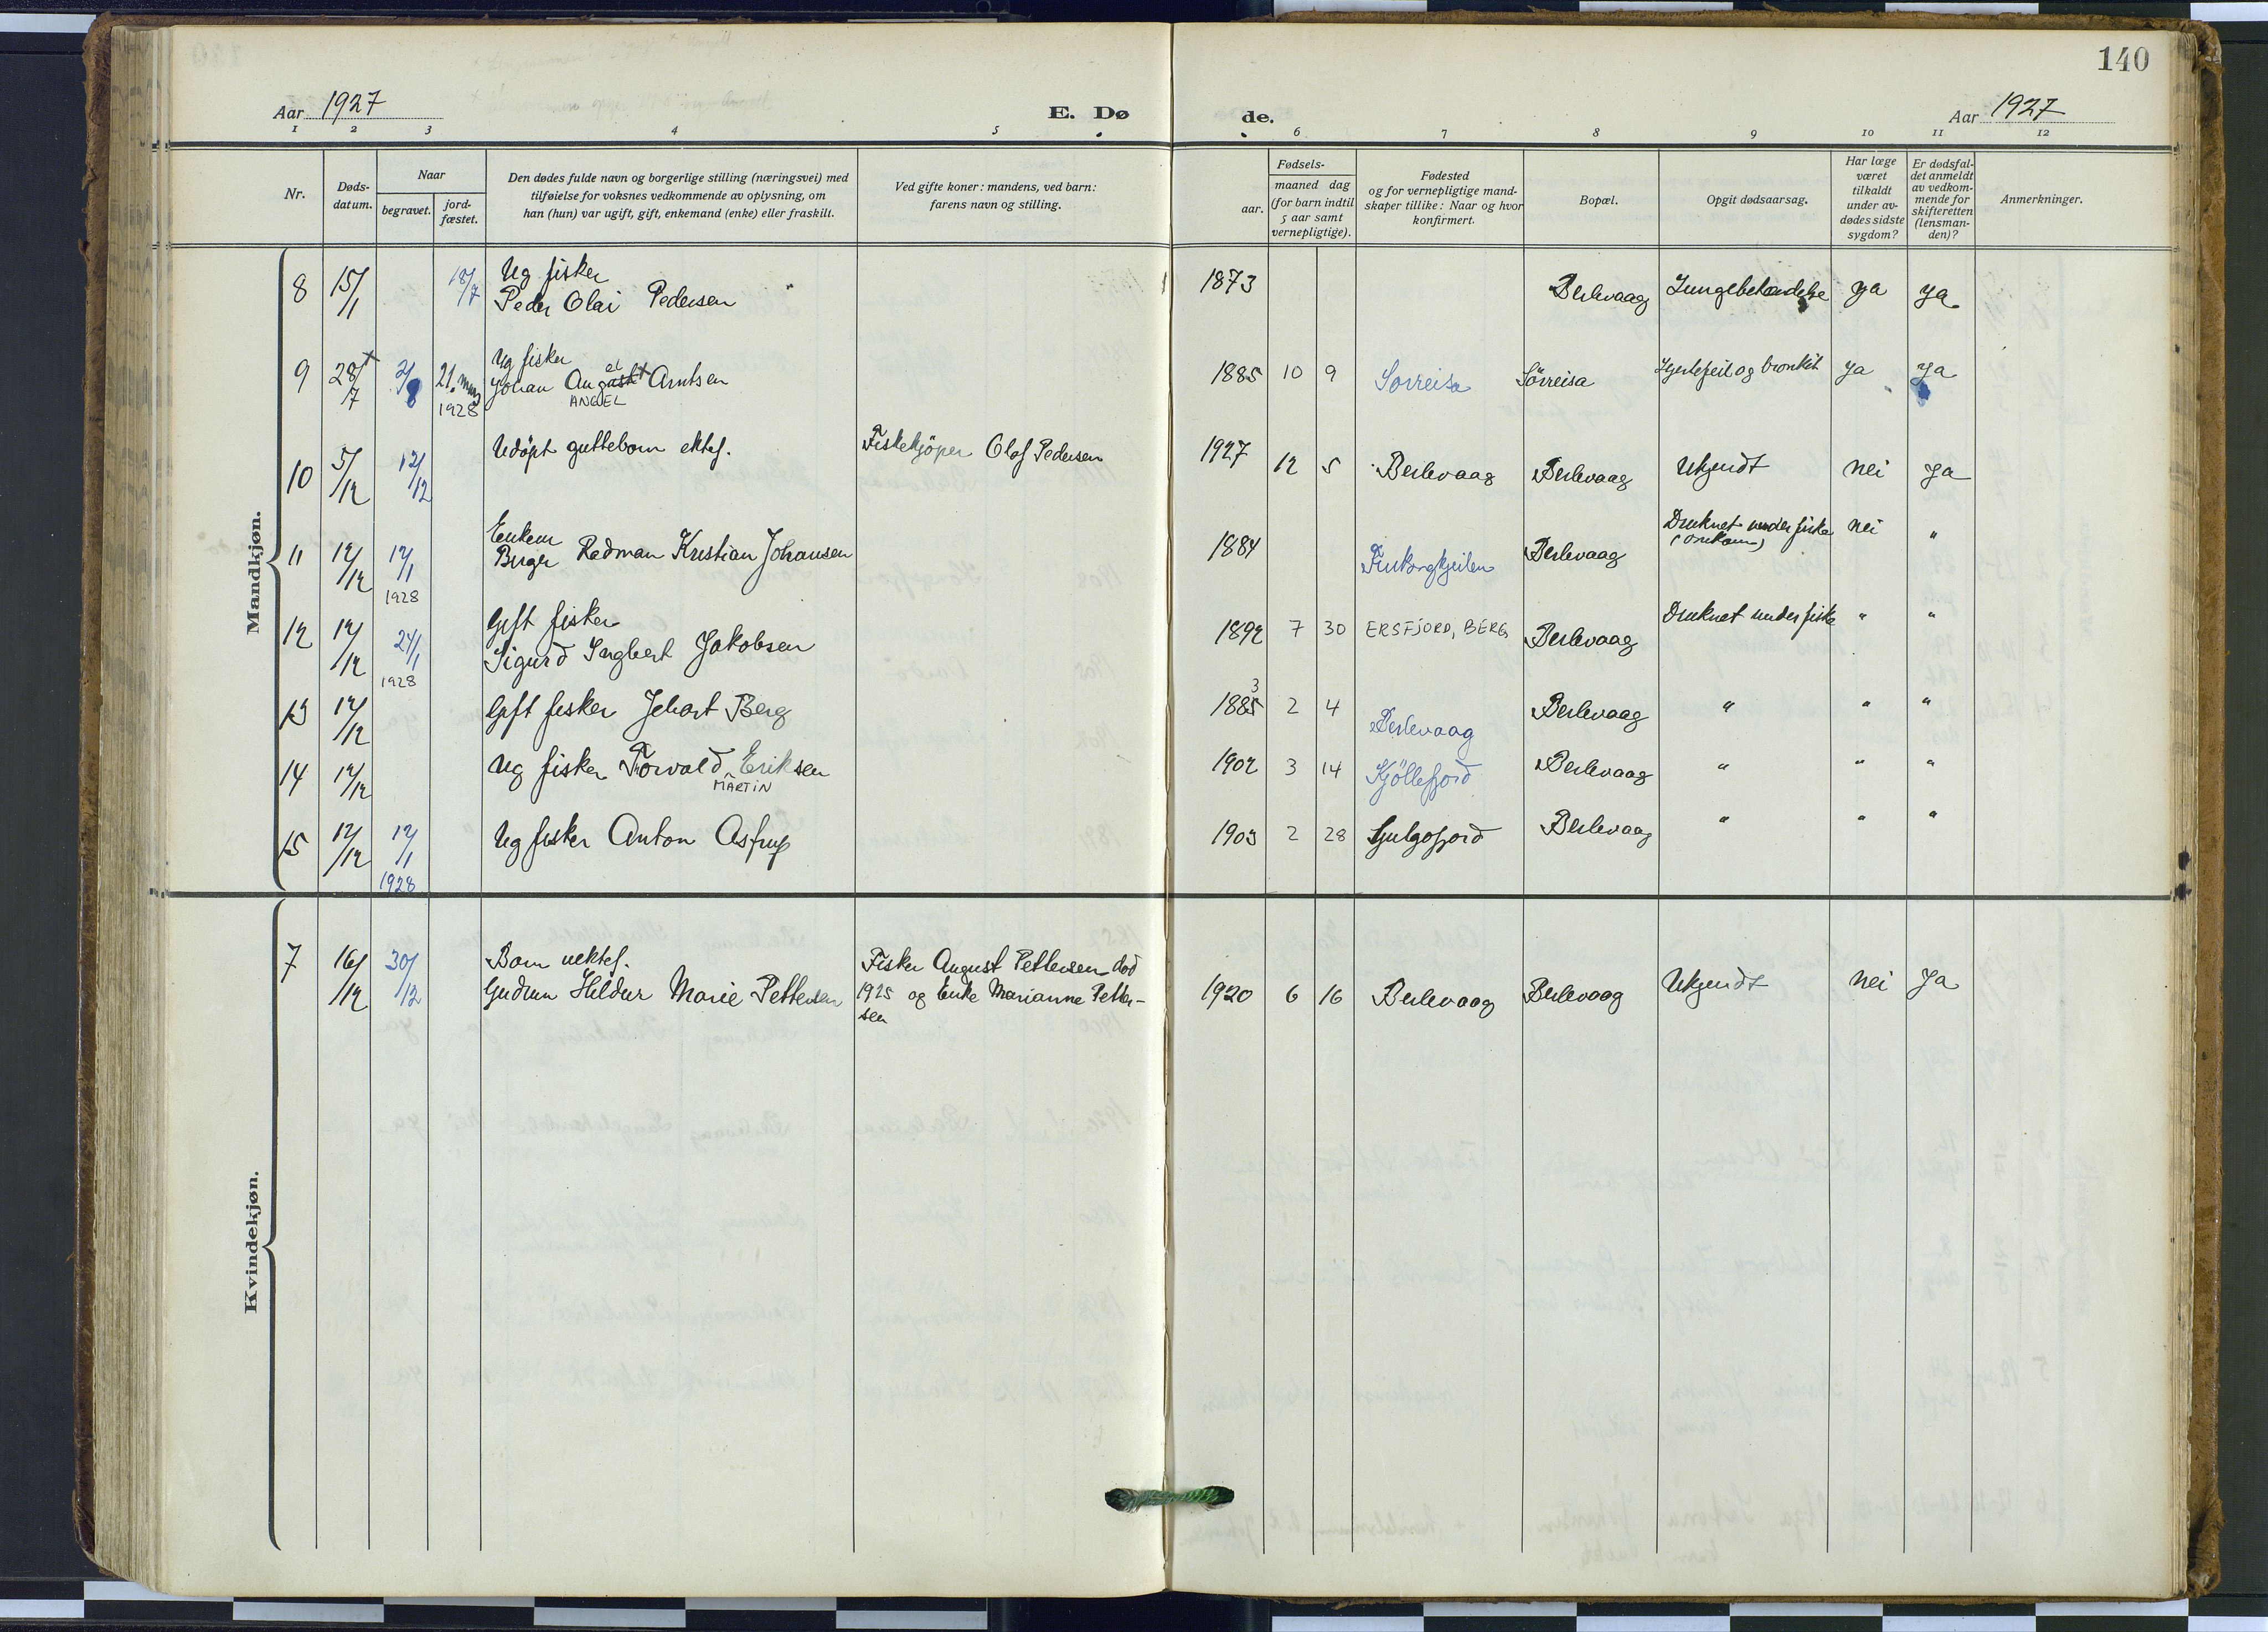 140
Aar 1927
E. Dø
de.
Aar 1927
1 2 3 4 5 6 7 8 9 10 11 12
Nr.
Døds-
datum.
Naar
begravet.
jord-
fæstet.
Den dødes fulde navn og borgerlige stilling (næringsvei) med
tilføielse for voksnes vedkommende av oplysning, om
han (hun) var ugift, gift, enkemand (enke) eller fraskilt.
Ved gifte koner: mandens, ved barn:
farens navn og stilling.
Fødsels-
aar.
maaned dag
(for barn indtil
5 aar samt
vernepligtige).
Fødested
og for vernepligtige mand-
skaper tillike: Naar og hvor
konfirmert.
Bopæl.
Opgit dødsaarsag.
Har læge
været
tilkaldt
under av-
dødes sidste
sygdom?
Er dødsfal-
det anmeldt
av vedkom-
mende for
skifteretten
(lensman-
den)?
Anmerkninger.
Mandkjøn.
8 15/1 18/7 Ug fisker
Peder Olai Pedersen 1873 Berlevaag Lungebetændelse ja ja
9 28/7 + 2/8 21. mars 1928 Ug fisker
Johan Angel + Arntsen 1885 10 9 Sorreisa Sörreisa Hjertefeil og bronkit ja ja
ANGEL
10 5/12 12/12 Udöpt guttebarn ektef. Fiskekjöper Olaf Pedersen 1927 12 5 Berlevaag Berlevaag Ukjendt nei ja
11 12/12 12/1 1928 Enkem
Birger Redman Kristian Johansen 1884 Finkongkjeilen Berlevaag Druknet under fiske nei "
12 12/12 24/1 1928 Gift fisker
Sigurd Ingbert Jakobsen 1892 7 30 ERSFJORD, BERG Berlevaag Druknet under fiske " "
13 12/12 Gift fisker Johart Berg 1885 3 2 4 Berlevaag Berlevaag " " "
14 12/12 Ug fisker Torvald Eriksen 1902 3 14 Kjöllefjord Berlevaag " " "
MARTIN
15 12/12 12/1 1928 Ug fisker Anton Astrup 1903 2 28 Berlevaag " " "
Kvindekjøn.
7 16/12 30/12 Barn uektef.
Gudrun Hildur Marie Pettersen Fisker August Pettersen död
1925 og Enke Marianne Petter-
sen 1920 6 16 Berlevaag Berlevaag Ukjendt nei ja